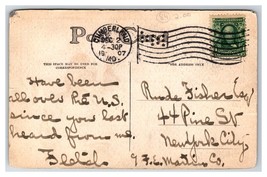 Po
CUMBERLAND
DEC 2
4-30P
1907
MD.
THIS SPACE MAY BE USED FOR
CORRESPONDENCE
THE ADDRESS ONLY
Have been
all over the U.S.
since you last
heard from me.
Rude Fisher
44 Pine St
New York City